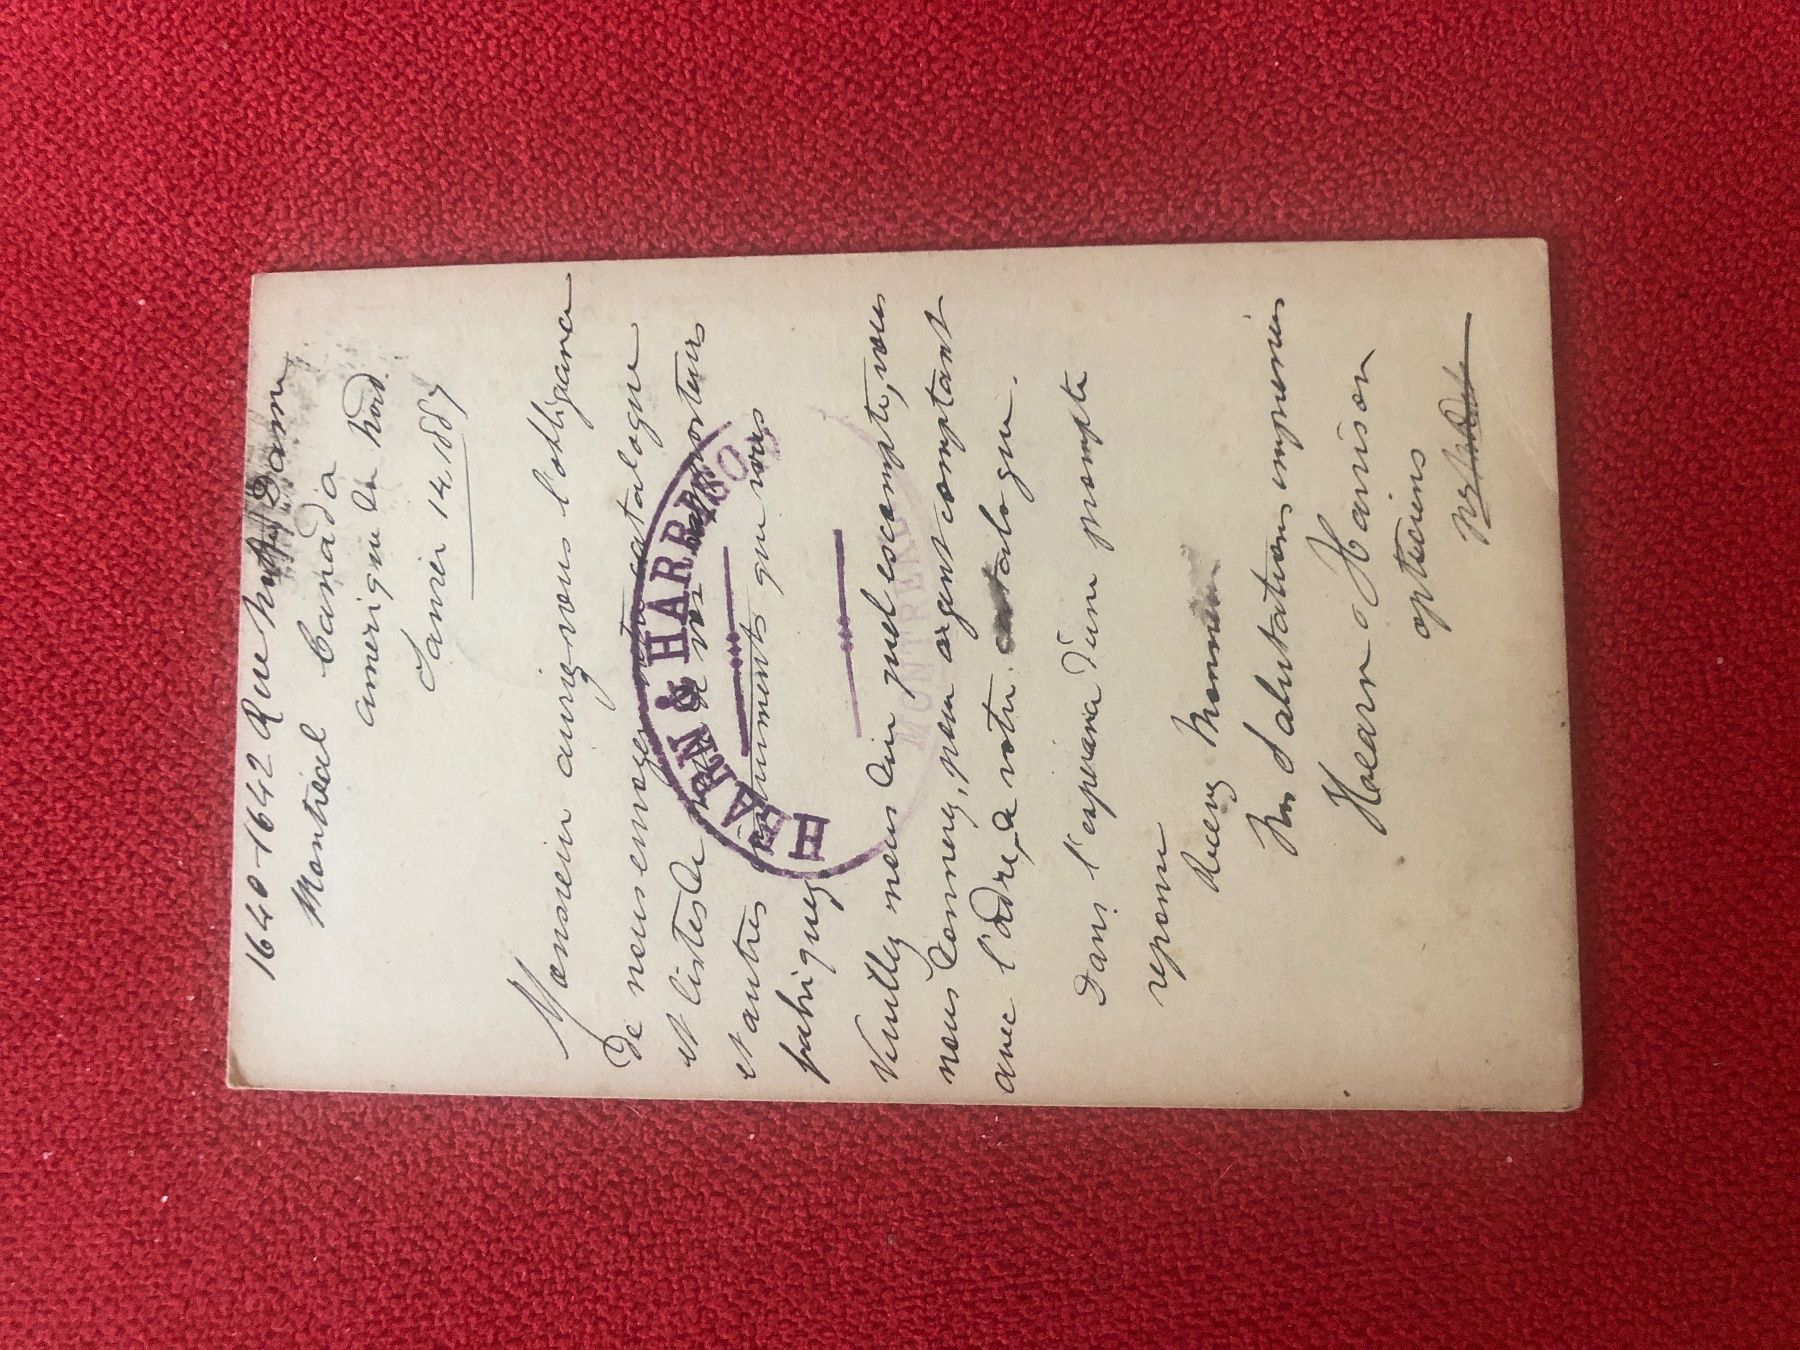 1640-1642 Rue Notre Dame
Montreal Canada
amerique du Nord
Janvier 14 1887
Monsieur auriez vous l'obligeance
de nous envoyer votre catalogue
et listes de
et autres instruments que vous
fabriquez
Veuillez nous dire quel escompte, vous
nous donnez, pour argent comptant
avec l'adre, de votre catalogue.
Dans l'esperance d'une prompte
reponse
Recevez Monsieur
Nos Salutations empressées
Hearn & Harrison
opticiens
HEARN & HARRISON
MONTREAL